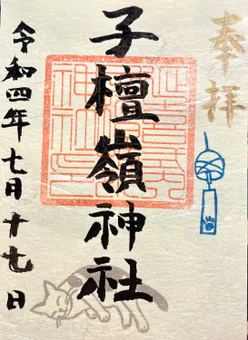 奉拝
子檀嶺神社
令和四年七月十七日